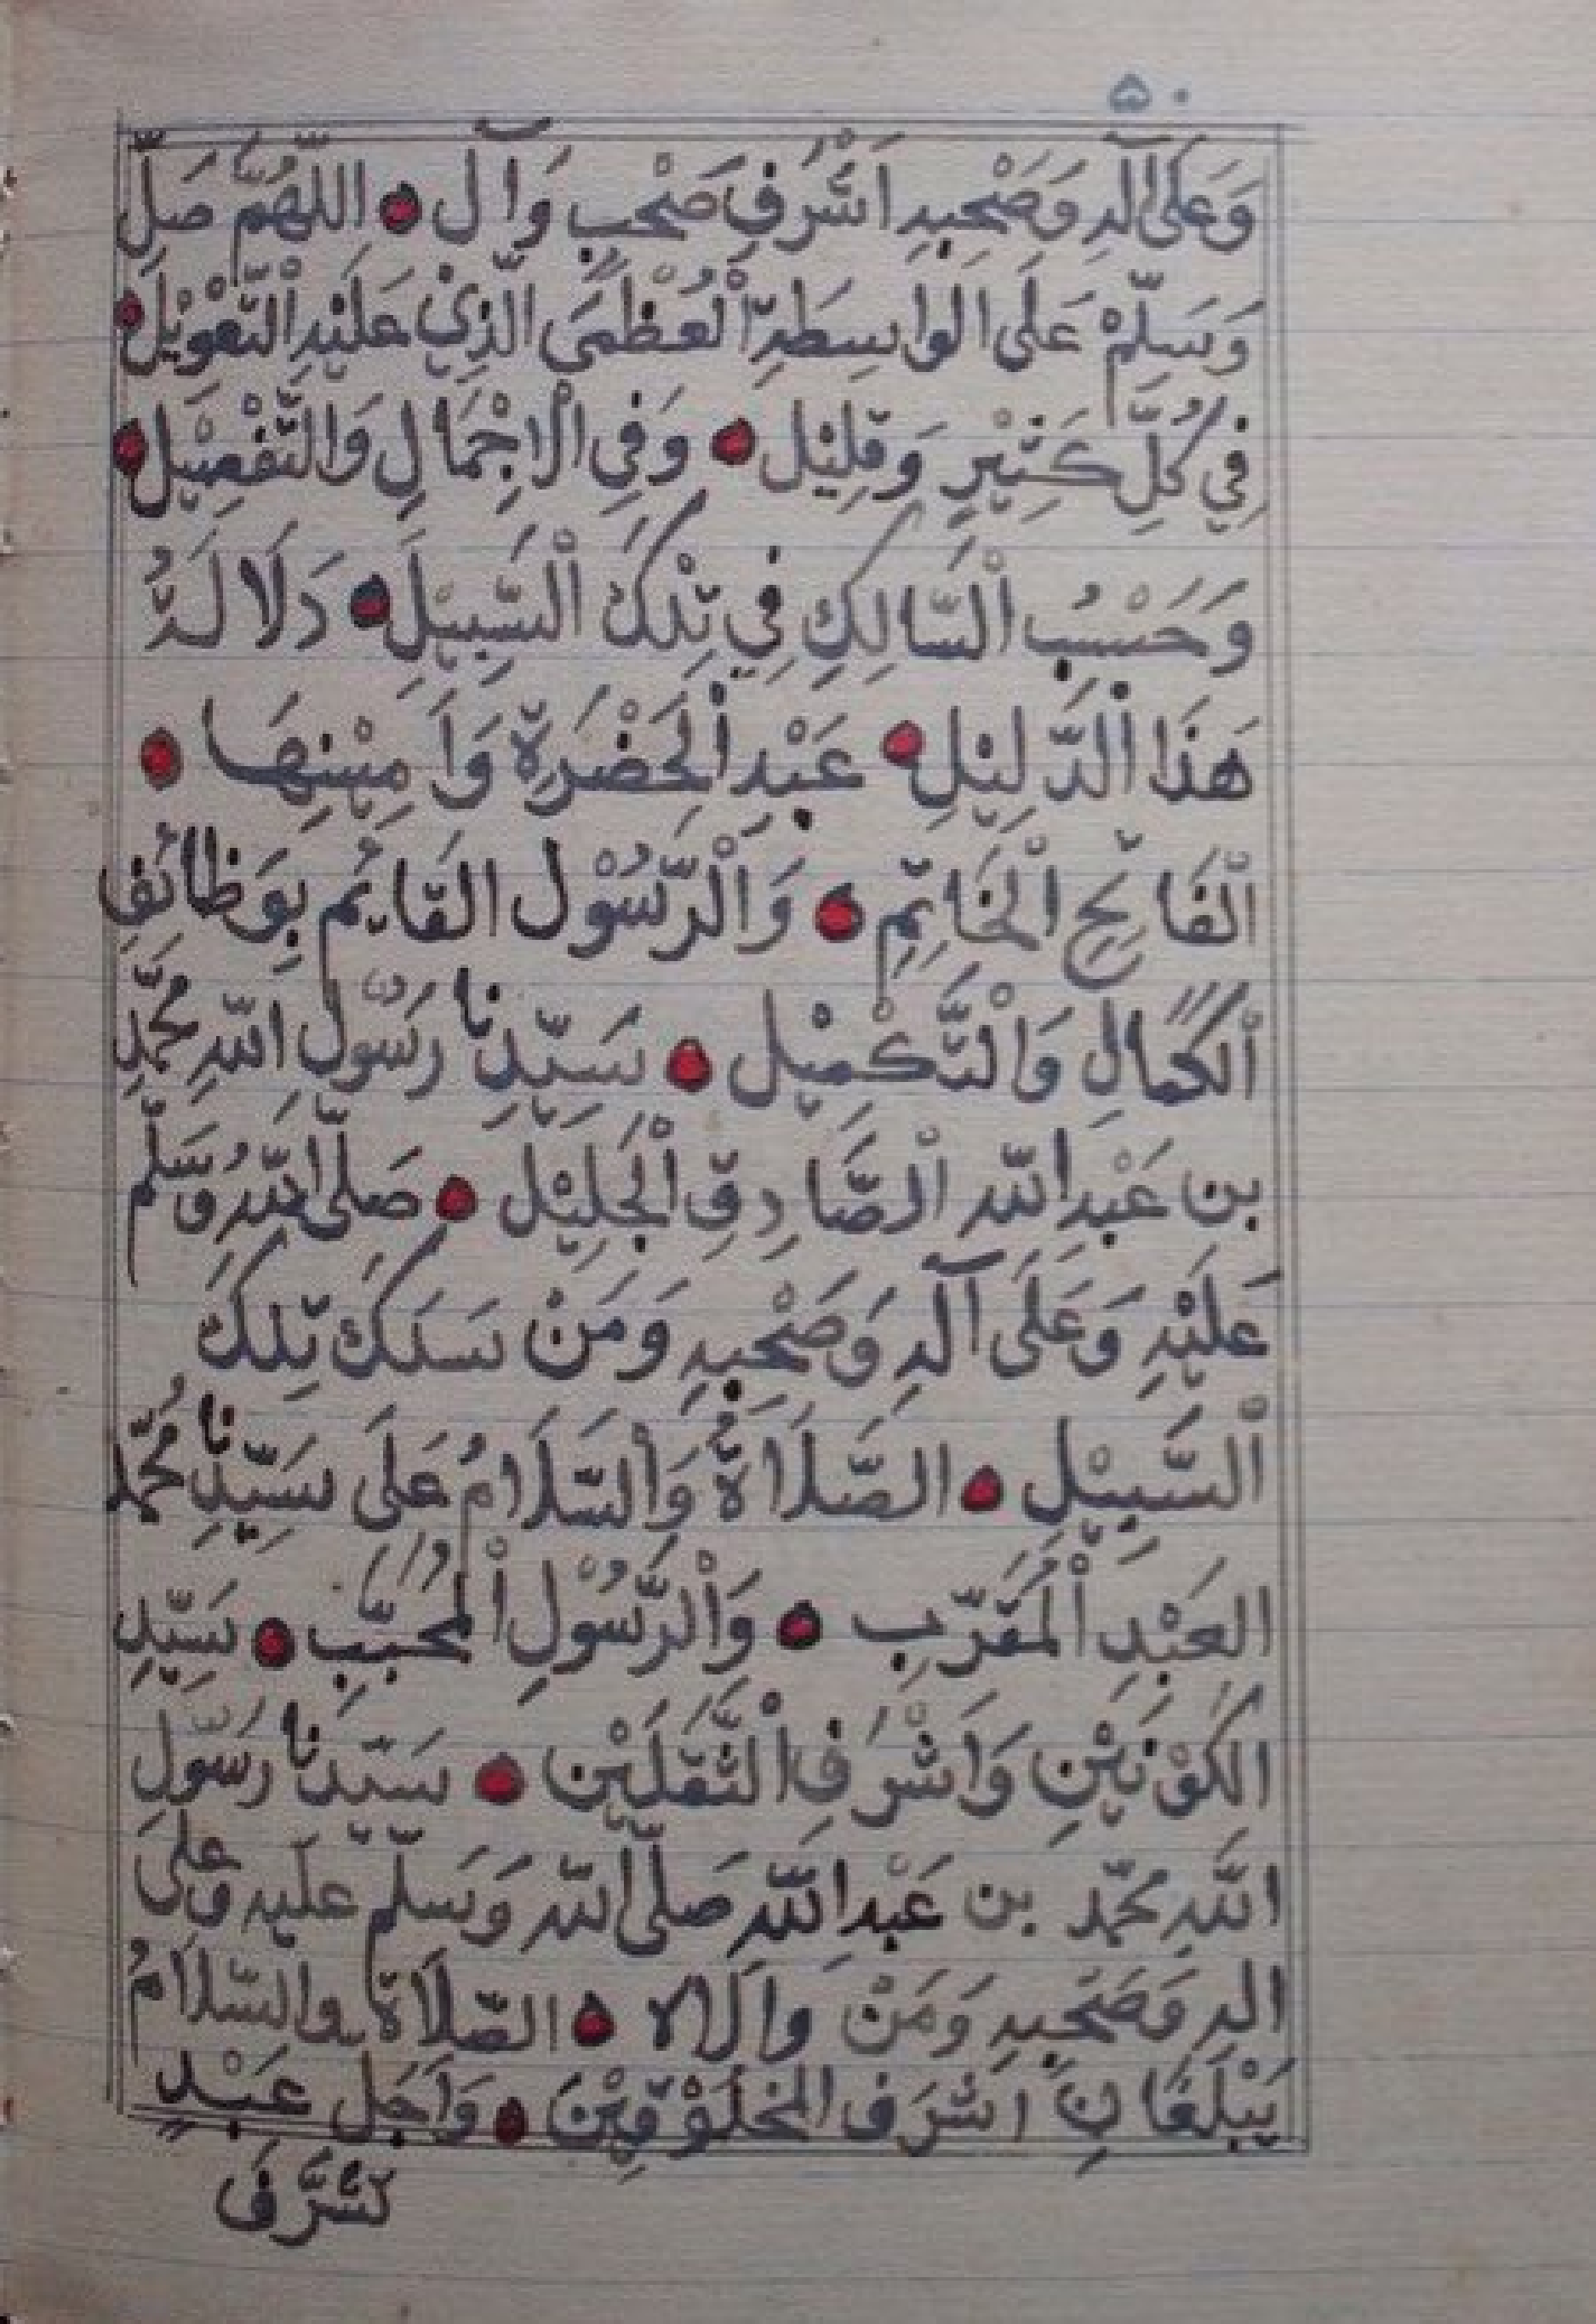 ٥٠
وَعَلَى آلِهِ وَصَحْبِهِ اَشْرَفِ صَحْبٍ وَآل ۝ اللّٰهُمَّ صَلِّ
وَسَلِّمْ عَلَى الْوَاسِطَةِ الْعُظْمَى الَّذِيْ عَلَيْهِ التَّعْوِيْل ۝
فِي كُلِّ كَثِيْرٍ وَقَلِيْل ۝ وَفِي الْاِجْمَالِ وَالتَّفْصِيْل ۝
وَحَسْبُ السَّالِكِ فِي تِلْكَ السَّبِيْلِ ۝ دَلَالَةُ
هَذَا الدَّلِيْلِ ۝ عَبْدِ الْحَضْرَةِ وَاَمِيْنِهَا ۝
اَلْفَاتِحِ الْخَاتِمِ ۝ وَالرَّسُوْل القَائِم بِوَظَائِفِ
اَلْكَمَالِ وَالتَّكْمِيْل ۝ سَيِّدِنَا رَسُوْلِ اللّٰهِ مُحَمَّدِ
بن عَبْدِ اللّٰه الصَّادِقِ الْجَلِيْل ۝ صَلَّى اللّٰهُ وَسَلَّم
عَلَيْهِ وَعَلَى آلِهِ وَصَحْبِهِ وَمَنْ سَلَكَ تِلْكَ
اَلسَّبِيْل ۝ الصَّلَاةُ وَالسَّلَامُ عَلَى سَيِّدِنَا مُحَمَّد
العَبْدِ الْمُقَرَّبِ ۝ وَالرَّسُوْلِ الْمُحَبَّبِ ۝ سَيِّدِ
الكَوْنَيْنِ وَاَشْرَفِ الثَّقَلَيْنِ ۝ سَيِّدِنَا رَسُوْلِ
اللّٰهِ مُحَمَّد بن عَبْدِ اللّٰهِ صَلَّى اللّٰه وَسَلَّم عَلَيْهِ وَعَلَى
الِهِ وَصَحْبِهِ وَمَنْ وَالَاه ۝ الصَّلَاة وَالسَّلَامُ
يَبْلُغَانِ اَشْرَف الْمَخْلُوْقِيْنَ ۝ وَاَجَل عَبْدٍ
تَشَرَّفَ